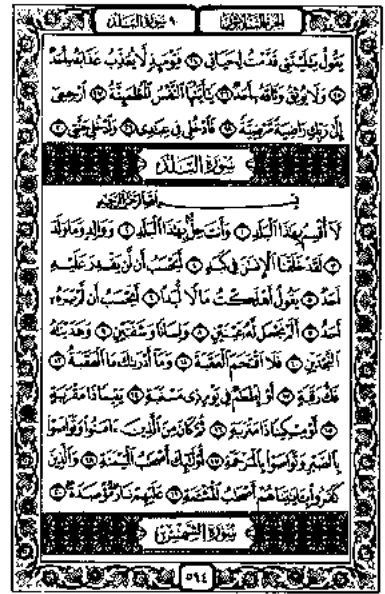 ٩٠ سورة البلد الجزء الثلاثون
يَقُولُ يَٰلَيْتَنِى قَدَّمْتُ لِحَيَاتِى ٢٤ فَيَوْمَئِذٍ لَّا يُعَذِّبُ عَذَابَهُۥٓ أَحَدٌ
٢٥ وَلَا يُوثِقُ وَثَاقَهُۥٓ أَحَدٌ ٢٦ يَٰٓأَيَّتُهَا ٱلنَّفْسُ ٱلْمُطْمَئِنَّةُ ٢٧ ٱرْجِعِىٓ
إِلَىٰ رَبِّكِ رَاضِيَةً مَّرْضِيَّةً ٢٨ فَٱدْخُلِى فِى عِبَٰدِى ٢٩ وَٱدْخُلِى جَنَّتِى ٣٠
سُورَةُ البَلَدِ
بِسْمِ ٱللَّهِ ٱلرَّحْمَٰنِ ٱلرَّحِيمِ
لَآ أُقْسِمُ بِهَٰذَا ٱلْبَلَدِ ١ وَأَنتَ حِلٌّۢ بِهَٰذَا ٱلْبَلَدِ ٢ وَوَالِدٍ وَمَا وَلَدَ
٣ لَقَدْ خَلَقْنَا ٱلْإِنسَٰنَ فِى كَبَدٍ ٤ أَيَحْسَبُ أَن لَّن يَقْدِرَ عَلَيْهِ
أَحَدٌ ٥ يَقُولُ أَهْلَكْتُ مَالًا لُّبَدًا ٦ أَيَحْسَبُ أَن لَّمْ يَرَهُۥٓ
أَحَدٌ ٧ أَلَمْ نَجْعَل لَّهُۥ عَيْنَيْنِ ٨ وَلِسَانًا وَشَفَتَيْنِ ٩ وَهَدَيْنَٰهُ
ٱلنَّجْدَيْنِ ١٠ فَلَا ٱقْتَحَمَ ٱلْعَقَبَةَ ١١ وَمَآ أَدْرَىٰكَ مَا ٱلْعَقَبَةُ ١٢
فَكُّ رَقَبَةٍ ١٣ أَوْ إِطْعَٰمٌ فِى يَوْمٍ ذِى مَسْغَبَةٍ ١٤ يَتِيمًا ذَا مَقْرَبَةٍ
١٥ أَوْ مِسْكِينًا ذَا مَتْرَبَةٍ ١٦ ثُمَّ كَانَ مِنَ ٱلَّذِينَ ءَامَنُوا۟ وَتَوَاصَوْا۟
بِٱلصَّبْرِ وَتَوَاصَوْا۟ بِٱلْمَرْحَمَةِ ١٧ أُو۟لَٰٓئِكَ أَصْحَٰبُ ٱلْمَيْمَنَةِ ١٨ وَٱلَّذِينَ
كَفَرُوا۟ بِـَٔايَٰتِنَا هُمْ أَصْحَٰبُ ٱلْمَشْـَٔمَةِ ١٩ عَلَيْهِمْ نَارٌ مُّؤْصَدَةٌۢ ٢٠
سُورَةُ الشَّمْسِ
٥٩٤